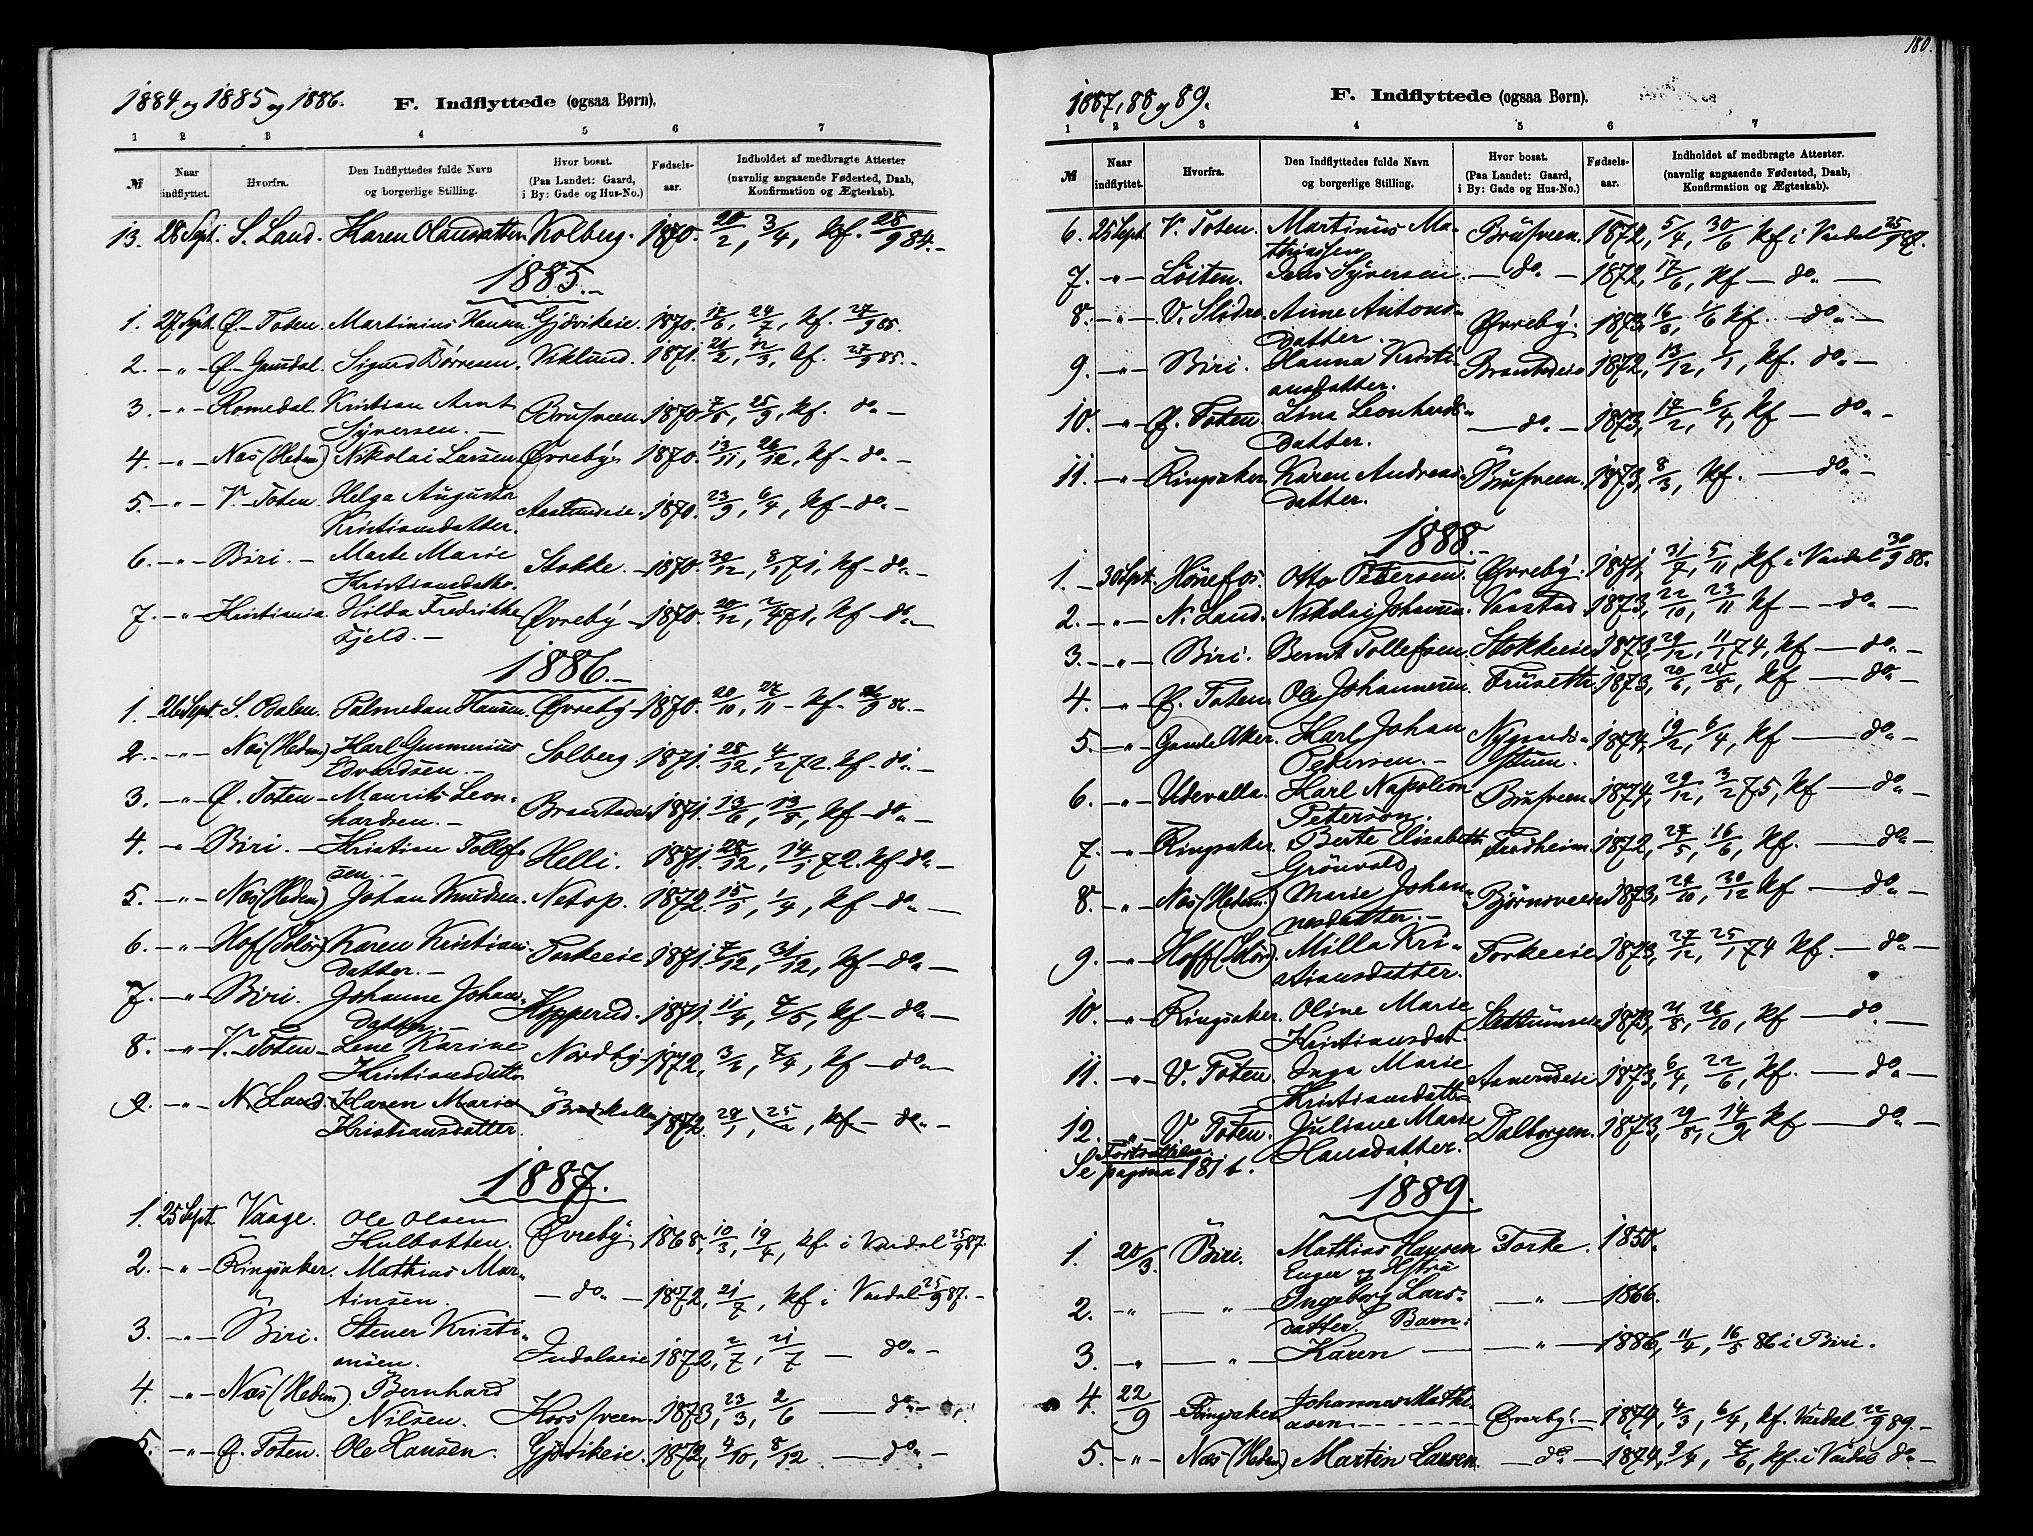 180.
1884 og 1885 og 1886. F. Indflyttede (ogsaa Børn).
1 2 3 4 5 6 7
№ Naar indflyttet. Hvorfra. Den Indflyttedes fulde Navn og borgerlige Stilling. Hvor bosat. (Paa Landet: Gaard, i By: Gade og Hus-No.) Fødsels-aar. Indholdet af medbragte Attester (navnlig angaaende Fødested, Daab, Konfirmation og Ægteskab).
13. 28 Sept. S. Land. Karen Olausdatter Kolberg. 1870. 20/2, 3/4, kf. 28/9 84. –
1885. –
1. 27 Sept. Ø. Toten. Martinius Hansen Gjøvikeie. 1870. 17/6, 24/7, kf. 27/9 85.
2. – " – Ø. Gausdal. Sigurd Børresen. Viklund. 1871. 21/2, 12/3, kf. 27/9 85. –
3. – " – Romedal. Kristian Arnt
Syversen. – Brusveen. 1870. 7/8, 25/9, kf. do –
4. – " – Næs (Hedm) Nikolai Larsen Øvreby. 1870. 13/11, 26/12, kf – do –
5. – " – V. Toten. Helga Augusta
Kristiansdatter. 1870. 23/9, 6/4, kf – do –
6. – " – Biri. – Marte Marie
Kristiansdatte. Stokke. – 1870. 30/12, 8/1 71, kf – do –
7. – " – Kristiania Hilda Fredrikke
Fjeld. – Øvreby – 1870. 20/12, 2/4 71, kf – do –
1886. –
1. 26 Sept. S. Odalen. Palmedan Hansen. Øvreby – 1870. 20/10, 27/11 – kf. 26/9 86. –
2. – " – Næs (Hedm) Karl Gunnerius
Edvardsen. – Solberg 1871. 28/12, 4/2 72. kf – do –
3. – " – Ø. Toten – Maurits Leon-
hardsen. – 1871. 13/6, 13/8, kf – do –
4. – " Biri. – Kristian Tollef-
sen. – Helli. 1871. 28/12, 14/1 72. kf do –
5. – " – Næs (Hedm) Johan Knudsen. Netop. 1872. 15/1, 1/4, kf – do –
6. – " – Hof (Solør) Karen Kristian-
datter. – Forkeeie 1871. 7/12, 31/12, kf – do –
7. – " – Biri. Johanne Johan-
datter. – Hopperud. 1871. 11/4, 7/5, kf – do –
8. – " – V. Toten – Lene Karine
Kristiansdatte Nordby 1872, 3/1, 7/4, kf – do –
9. – " – N. Land. Karen Marie
Kristiansdatter. 1872. 24/1, 25/2, kf – do –
1887.
1. 25 Sept Vaage. Ole Olsen
Øvreby. 1868, 10/3, 19/4, kf. i Vardal 25/9 87.
2. – " – Ringsaker. Mathias Mar-
tinsen. – do – 1872, 21/7, kf i Vardal 25/9 87. –
3. – " – Biri. Stener Kristi-
ansen. 1872, 2/7, 21/7 – do –
4. – " – Næs (Hedm). Bernhard
Nilsen. 1873, 23/3, 2/6 – do –
5. – " – Ø. Toten. Ole Hansen. Gjøvikeie. 1872, 4/10, 8/12 – do –
1887, 88 og 89. F. Indflyttede (ogsaa Børn).
1 2 3 4 5 6 7
№ Naar indflyttet. Hvorfra. Den Indflyttedes fulde Navn og borgerlige Stilling. Hvor bosat. (Paa Landet: Gaard, i By: Gade og Hus-No.) Fødsels-aar. Indholdet af medbragte Attester. (navnlig angaaende Fødested, Daab, Konfirmation og Ægteskab).
6. 25 Sept. V. Toten. Martinus Ma-
thiassen Brusveen. 1872, 5/4, 30/6 kf. i Vardal 25/9 87.
7. – " – Løiten. Jens Syversen – do – 1872, 17/6, kf – do –
8. – " – V. Slidre. Anne Antons-
datter. Øvreby. 1873, 16/3, 1/6 kf. – do –
9. – " – Biri. Hanna Kristi-
ansdatter. 1872, 13/12, 1/1, kf. do –
10. – " – Ø. Toten. Lina Leonhards-
datter. – do – 1873, 17/2, 6/4, kf – do –
11. – " – Ringsaker. Karen Andreas-
datter. Brusveen. 1873, 8/3, kf. – do –
1888. –
1. – 30 Sept. Hønefos. Otto Petersen. Øvreby. 1871, 31/7, 5/11, kf i Vardal 30/9 88. –
2. – " – N. Land. Nikolai Johansen. 1873, 22/10, 23/11 kf – do –
3. – " – Biri. Bernt Tollefsen. Stokkeeie 1873, 29/12, 11/1 74, kf – do –
4. – " – Ø. Toten. Ole Johannesen. 1873, 20/6, 24/8, kf – do –
5. – " – Karl Johan
Petersen. – 1874, 19/2, 6/4, kf – do –
6. – " – Udevalla. Karl Napoleon
Peterson. Brusveen. 1874, 29/12, 3/2 75, kf – do –
7. – " – Ringsaker. Berte Elisabeth
Grönvold Fredheim. 1872, 27/5, 16/6, kf. – do –
8. – " – Næs (Hedm.) Marie Johan-
nesdatter. – Bjørnsveen 1873, 24/10, 30/12 kf – do –
9. – " – Hoff (Solør). Milla Kri-
stiansdatter. Forkeeie 1873, 27/12, 25/1 74 kf. – do –
10. – " – Ringsaker. Oline Marie
Kristiansdat. 1873, 21/8, 26/10, kf – do –
11. – " – V. Toten. Inga Marie
Kristiansdatter 1873, 6/4, 22/6, kf. – do –
12. " V. Toten. Juliane Marie
Hansdatter. Dalborgen. 1873, 29/8, 14/9 kf – do –
Fortsættelsen.
Se pagina 181 b.
1889.
1. 20/3. Biri. Mathias Hansen
Enger og Hstru Forke. 1850.
2. " – " – Ingeborg Lars-
datter. Barn: – " – 1866.
3. – " – " – Karen – – " – 1886, 11/4, 16/5 86 i Biri.
4. 22/9 Ringsaker Johannes Mathi-
asen – Øvreby. – 1874, 4/3, 6/4, kf. Vardal 22/9 89. –
5. – " – Næs (Hedm) Martin Larsen. – do – 1874, 9/4, 7/6, kf. i Vardal do –